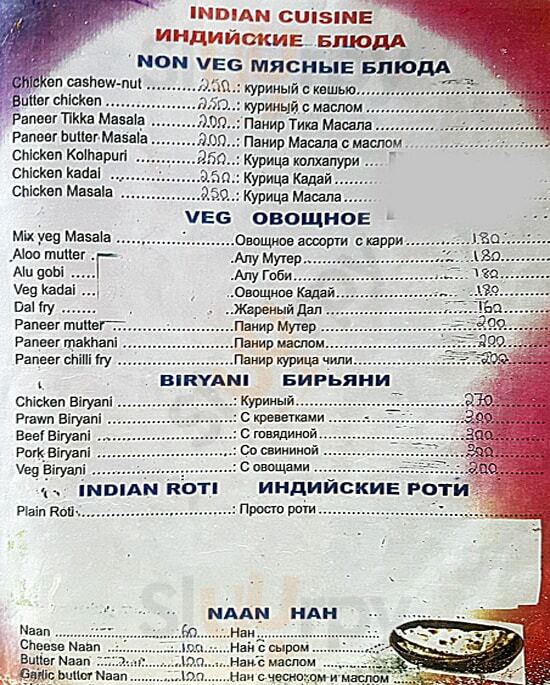 INDIAN CUISINE
ИНДИЙСКИЕ БЛЮДА
NON VEG МЯСНЫЕ БЛЮДА
Chicken cashew-nut 250 : куриный с кешью
Butter chicken 250 : куриный с маслом
Paneer Tikka Masala 200 : Панир Тика Масала
Paneer butter Masala 200 : Панир Масала с маслом
Chicken Kolhapuri 250 : Курица колхапури
Chicken kadai 250 : Курица Кадай
Chicken Masala 250 : Курица Масала
VEG ОВОЩНОЕ
Mix veg Masala Овощное ассорти с карри 180
Aloo mutter Алу Мутер 180
Alu gobi Алу Гоби 180
Veg kadai Овощное Кадай 180
Dal fry Жареный Дал 160
Paneer mutter Панир Мутер 200
Paneer makhani Панир маслом 200
Paneer chilli fry Панир курица чили 200
BIRYANI БИРЬЯНИ
Chicken Biryani : Куриный 270
Prawn Biryani : С креветками 300
Beef Biryani : С говядиной 300
Pork Biryani : Со свининой 300
Veg Biryani : С овощами 200
INDIAN ROTI ИНДИЙСКИЕ РОТИ
Plain Roti : Просто роти
NAAN НАН
Naan 60 : Нан
Cheese Naan 100 : Нан с сыром
Butter Naan 100 : Нан с маслом
Garlic butter Naan 100 : Нан с чесноком и маслом